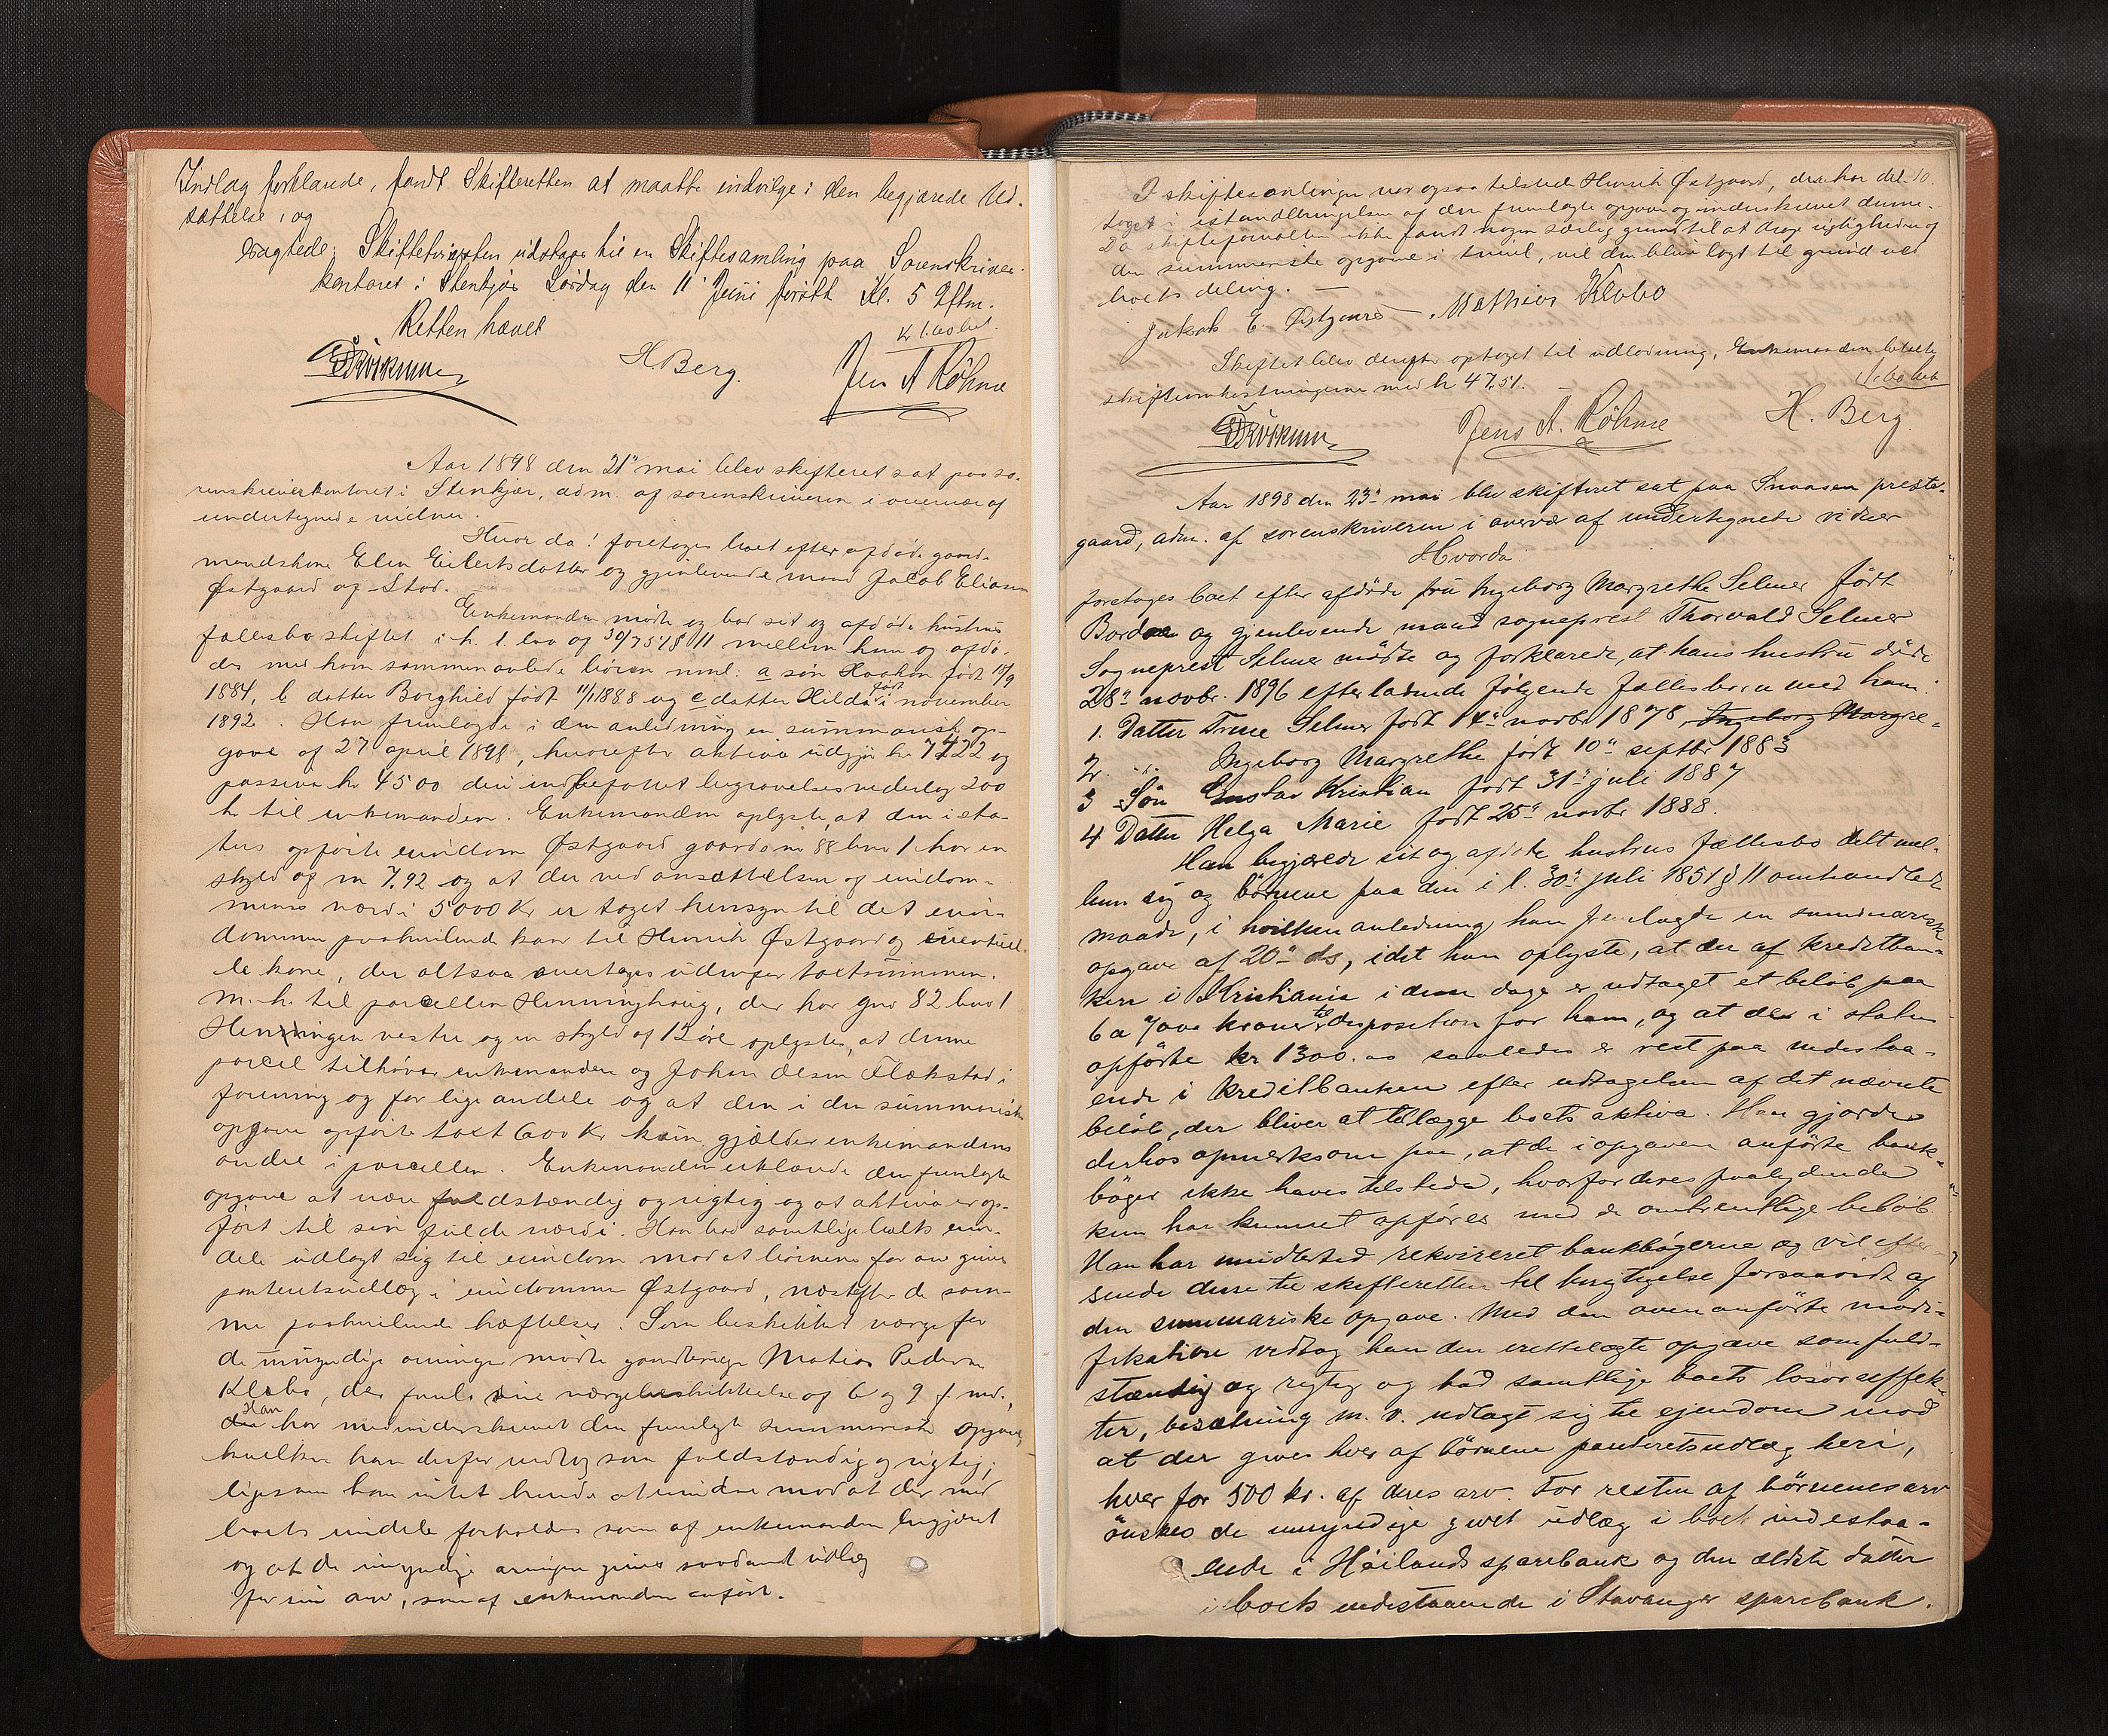 Indlæg forklarede, fandt Skifteretten at maatte indvilge i den begjærede Ud-
sættelse, og
Eragtede: Skifteforretten udstaar til en Skiftesamling paa Sorenskriver-
kontoret i Stenkjær Lørdag den 11' Juni førstk. Kl. 5 Eftm.
Retten hævet
H Berg. Jens A Røhme
Aar 1898 den 21' mai blev skifteret sat paa so-
renskriverkontoret i Stenkjær, adm. af sorenskriveren i overvær af
undertegnede vidner.
Hvor da! foretoges boet efter afdøde gaard-
mandskone Elen Eilertsdatter og gjenlevende mand Jacob Eliasen
Østgaard af Stod.
Enkemanden mødte og bad sit og afdøde hustrus
fællesbo skiftet i h. t. lov af 30/7 51 § 11 mellem ham og afdø-
des med ham sammenavlede børen nml: a søn Haakon født 11/9
1884, b datter Borghild født 11/1 1888 og c datter Hilda født i november
1892. Han fremlagde i den anledning en summarisk op-
gave af 27 april 1898, hvorefter aktiva udgjør kr 7422 og
passiva kr 4500 deri indbefattet begravelsesvederlag 200
kr til enkemanden. Enkemanden oplyste, at den i sta-
tus opførte eiendom Østgaard gaards no 88 bno 1 har en
skyld af m 7,92 og at der ved ansættelsen af eiendom-
mens værdi 5000 Kr er taget hensyn til det eien-
dommen paahvilende kaar til Henrik Østgaard og eventuel-
le kone, der altsaa overtages udenfor taxtsummen.
M. h. til parcellen Henninghaug, der har gno 82 bno 1
Henningen vestre og en skyld af 12 øre oplystes, at denne
parcel tilhører enkemanden og Johan Olsen Flekstad i
forening og for lige andele og at den i den summariske
opgave opførte taxt 600 Kr kun gjælder enkemandens
andel i parcellen. Enkemanden erklærede den fremlagte
opgave at være fuldstændig og rigtig og at aktiva er op-
ført til sin fulde værdi. Han bad samtlige boets eien-
dele udlagt sig til eiendom mod at børnene for arv gives
panteretsudlæg i eiendommen Østgaard, næstefter de sam-
me paahvilende hæftelser. Som beskikket værge for
de umyndige arvinger mødte gaardbruger Matias Pedersen
Klebo, der freml. sine værgebeskikkelse af 6 og 9 f. md.,
Han har medunderskrevet den fremlagte summariske opgave,
hvilken han derfor vedtog som fuldstændig og rigtig;
ligesom han intet havde at indvende mod at der med
boets eiendele forholdes som af enkemanden begjæret
og at de umyndige arvinger gives saadant udlæg
for sin arv, som af enkemanden anført.
I skiftesamlingen var ogsaa tilstede Henrik Østgaard, der har del- 10.
taget i istandbringelsen af den fremlagte opgave og underskrevet denne.
Da skifteforvalteren ikke fandt nogen særlig grund til at drage rigtigheden af
den summariske opgave i tvivl, vil den blive lagt til grund ved
boets deling. –
Jakob E. Østgaard Mathias Klebo
Skiftet blev derefter optaget til udlodning. Enkemanden betalte
skifteomkostningerne med kr 47,51.
Jens A. Røhme H. Berg.
Aar 1898 den 23' mai blev skifteret sat paa Snaasen præste-
gaard, adm. af sorenskriveren i overvær af undertegnede vidner
Hvorda:
foretoges boet efter afdøde fru Ingeborg Margrethe Selmer født
Bordoe og gjenlevende mand sogneprest Thorvald Selmer
Sogneprest Selmer mødte og forklarede, at hans hustru døde
28' novbr. 1896 efterladende følgende fællesbørn med ham:
1. Datter Trine Selmer født 14' novbr 1878, Ingeborg Margre-
2. -"- Ingeborg Margrethe født 10' septbr 1883
3 Søn Gustav Kristian født 31' juli 1887
4 Datter Helga Marie født 25' novbr 1888.
Han begjærede sit og afdøde hustrus fællesbo delt mel-
lem sig og børnene paa den i l. 30' juli 1851 § 11 omhandlede
maade, i hvilken anledning han fremlagde en summarisk
opgave af 20' ds, idet han oplyste, at der af kreditban-
ken i Kristiania i disse dage er udtaget et beløb paa
6 a 7000 kroner til disposition for ham, og at det i status
opførte kr 1300.00 saaledes er rest paa indestaa-
ende i Kreditbanken efter udtagelsen af det nævnte
beløb, der bliver at tillægge boets aktiva. Han gjorde
derhos opmerksom paa, at de i opgaven anførte bank-
bøger ikke haves tilstede, hvorfor deres paalydende
kun har kunnet opføres med de omtrentlige beløb.
Han har imidlertid rekvireret bankbøgerne og vil efter-
sende disse til skifteretten til berigtigelse forsaavidt af
den summariske opgave. Med den ovenanførte modi-
fikation vedtog han den irettelagte opgave som fuld-
stændig og rigtig og bad samtlige boets løsøreeffek-
ter, besætning m. v. udlagt sig til ejendom mod
at der gives hver af børnene panteretsudlæg heri,
hver for 500 kr. af deres arv. For resten af børnenes arv
ønskes de umyndige givet udlæg i boets indestaa-
ende i Høilands sparebank og den ældste datter
i boets indestaaende i Stavanger sparebank.